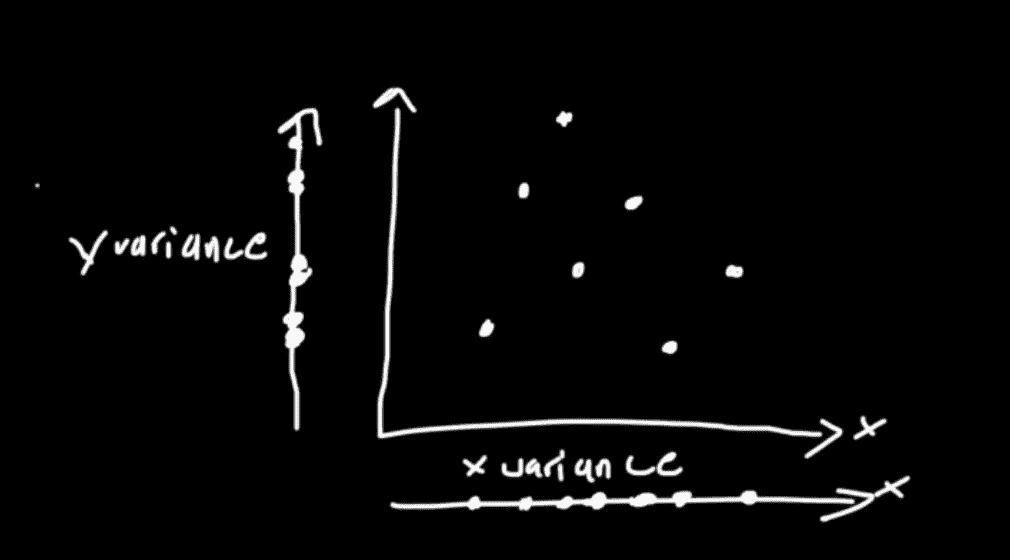 y variance
x
x variance
x